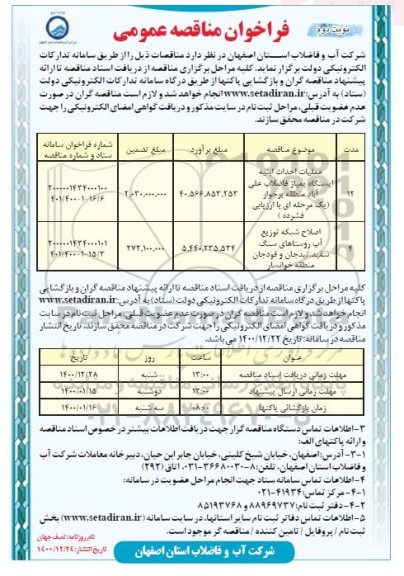 نوبت دوم
فراخوان مناقصه عمومی
شرکت آب و فاضلاب استان اصفهان در نظر دارد مناقصات ذیل را از طریق سامانه تدارکات
الکترونیکی دولت برگزار نماید. کلیه مراحل برگزاری مناقصه از دریافت اسناد مناقصه تا ارائه
پیشنهاد مناقصه گران و بازگشایی پاکتها از طریق درگاه سامانه تدارکات الکترونیکی دولت
(ستاد) به آدرس: www.setadiran.ir انجام خواهد شد و لازم است مناقصه گران در صورت
عدم عضویت قبلی، مراحل ثبت نام در سایت مذکور و دریافت گواهی امضای الکترونیکی را جهت
شرکت در مناقصه محقق سازند.
مدت موضوع مناقصه مبلغ برآورد مبلغ تضمین شماره فراخوان سامانه ستاد و شماره مناقصه
۱۲ عملیات احداث ابنیه ایستگاه پمپاژ فاضلاب علی آباد منطقه برخوار (یک مرحله ای با ارزیابی فشرده) ۴۰.۵۶۶.۸۵۳.۲۵۳ ۲.۰۳۰.۰۰۰.۰۰۰ ۲۰۰۰۰۰۱۴۳۴۰۰۰۱۰۰ ۴۰۱/۴۰۰-۱-۱۶/۶
۴ اصلاح شبکه توزیع آب روستاهای سنگ سفید، تیدجان و قودجان منطقه خوانسار ۵.۴۴۰.۲۳۵.۵۳۴ ۲۷۲.۱۰۰.۰۰۰ ۲۰۰۰۰۰۱۴۳۴۰۰۰۱۰۱ ۴۰۱/۴۰۰-۱-۱۵/۳
کلیه مراحل برگزاری مناقصه از دریافت اسناد مناقصه تا ارائه پیشنهاد مناقصه گران و بازگشایی
پاکتها از طریق درگاه سامانه تدارکات الکترونیکی دولت (ستاد) به آدرس: www.setadiran.ir
انجام خواهد شد و لازم است مناقصه گران در صورت عدم عضویت قبلی، مراحل ثبت نام در سایت
مذکور و دریافت گواهی امضای الکترونیکی را جهت شرکت در مناقصه محقق سازند. تاریخ انتشار
مناقصه در سامانه: تاریخ ۱۴۰۰/۱۲/۲۲ می باشد.
عنوان ساعت روز تاریخ
مهلت زمانی دریافت اسناد مناقصه ۱۳:۰۰ شنبه ۱۴۰۰/۱۲/۲۸
مهلت زمانی ارسال پیشنهاد ۱۳:۰۰ دوشنبه ۱۴۰۰/۰۱/۱۵
زمان بازگشائی پاکتها ۰۸:۰۰ سه شنبه ۱۴۰۰/۰۱/۱۶
۳-اطلاعات تماس دستگاه مناقصه گزار جهت دریافت اطلاعات بیشتر در خصوص اسناد مناقصه
و ارائه پاکتهای الف:
۳-۱- آدرس: اصفهان، خیابان شیخ کلینی، خیابان جابر ابن حیان، دبیرخانه معاملات شرکت آب
و فاضلاب استان اصفهان، تلفن: ۸-۳۶۶۸۰۰۳۰-۰۳۱ (اتاق ۲۹۲)
۴-اطلاعات تماس سامانه ستاد جهت انجام مراحل عضویت در سامانه:
۴-۱- مرکز تماس: ۴۱۹۳۴-۰۲۱
۴-۲- دفتر ثبت نام: ۸۸۹۶۹۷۳۷ و ۸۵۱۹۳۷۶۸
۵-اطلاعات تماس دفاتر ثبت نام سایر استانها، در سایت سامانه (www.setadiran.ir) بخش
ثبت نام / پروفایل / تامین کننده / مناقصه گر موجود است.
شرکت آب و فاضلاب استان اصفهان
نام روزنامه: نصف جهان
تاریخ انتشار: ۱۴۰۰/۱۲/۲۴